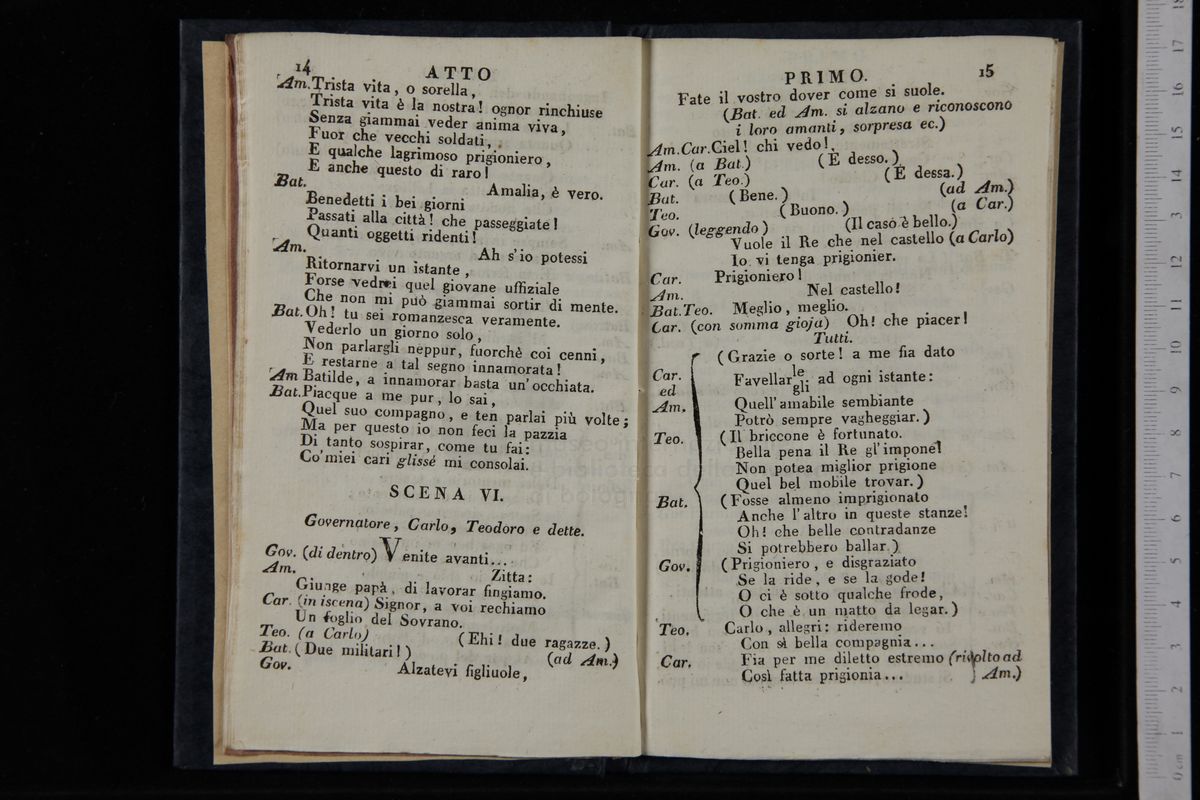 14 ATTO
Am. Trista vita, o sorella,
Trista vita è la nostra! ognor rinchiuse
Senza giammai veder anima viva,
Fuor che vecchi soldati,
E qualche lagrimoso prigioniero,
E anche questo di raro!
Bat. Amalia, è vero.
Benedetti i bei giorni
Passati alla città! che passeggiate!
Quanti oggetti ridenti!
Am. Ah s'io potessi
Ritornarvi un istante,
Forse vedrei quel giovane uffiziale
Che non mi può giammai sortir di mente.
Bat. Oh! tu sei romanzesca veramente.
Vederlo un giorno solo,
Non parlargli neppur, fuorchè coi cenni,
E restarne a tal segno innamorata!
Am Batilde, a innamorar basta un'occhiata.
Bat. Piacque a me pur, lo sai,
Quel suo compagno, e ten parlai più volte;
Ma per questo io non feci la pazzia
Di tanto sospirar, come tu fai:
Co'miei cari glissé mi consolai.
SCENA VI.
Governatore, Carlo, Teodoro e dette.
Gov. (di dentro) Venite avanti...
Am. Zitta:
Giunge papà, di lavorar fingiamo.
Car. (in iscena) Signor, a voi rechiamo
Un foglio del Sovrano.
Teo. (a Carlo) (Ehi! due ragazze.)
Bat. (Due militari!) (ad Am.)
Gov. Alzatevi figliuole,
PRIMO. 15
Fate il vostro dover come si suole.
(Bat. ed Am. si alzano e riconoscono
i loro amanti, sorpresa ec.)
Am. Car. Ciel! chi vedo!
Am. (a Bat.) (È desso.)
Car. (a Teo.) (È dessa.)
Bat. (Bene.) (ad Am.)
Teo. (Buono.) (a Car.)
Gov. (leggendo) (Il caso è bello.)
Vuole il Re che nel castello (a Carlo)
Io vi tenga prigionier.
Car. Prigioniero!
Am. Nel castello!
Bat. Teo. Meglio, meglio.
Car. (con somma gioja) Oh! che piacer!
Tutti.
(Grazie o sorte! a me fia dato
Car. ed Am. Favellar le gli ad ogni istante:
Quell'amabile sembiante
Potrò sempre vagheggiar.)
Teo. (Il briccone è fortunato.
Bella pena il Re gl'impone!
Non potea miglior prigione
Quel bel mobile trovar.)
Bat. (Fosse almeno imprigionato
Anche l'altro in queste stanze!
Oh! che belle contradanze
Si potrebbero ballar.)
Gov. (Prigioniero, e disgraziato
Se la ride, e se la gode!
O ci è sotto qualche frode,
O che è un matto da legar.)
Teo. Carlo, allegri: rideremo
Con sì bella compagnia...
Car. Fia per me diletto estremo (rivolto ad
Così fatta prigionia... Am.)